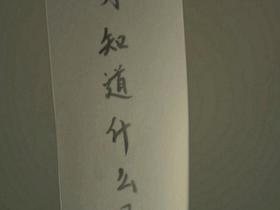 知道什么